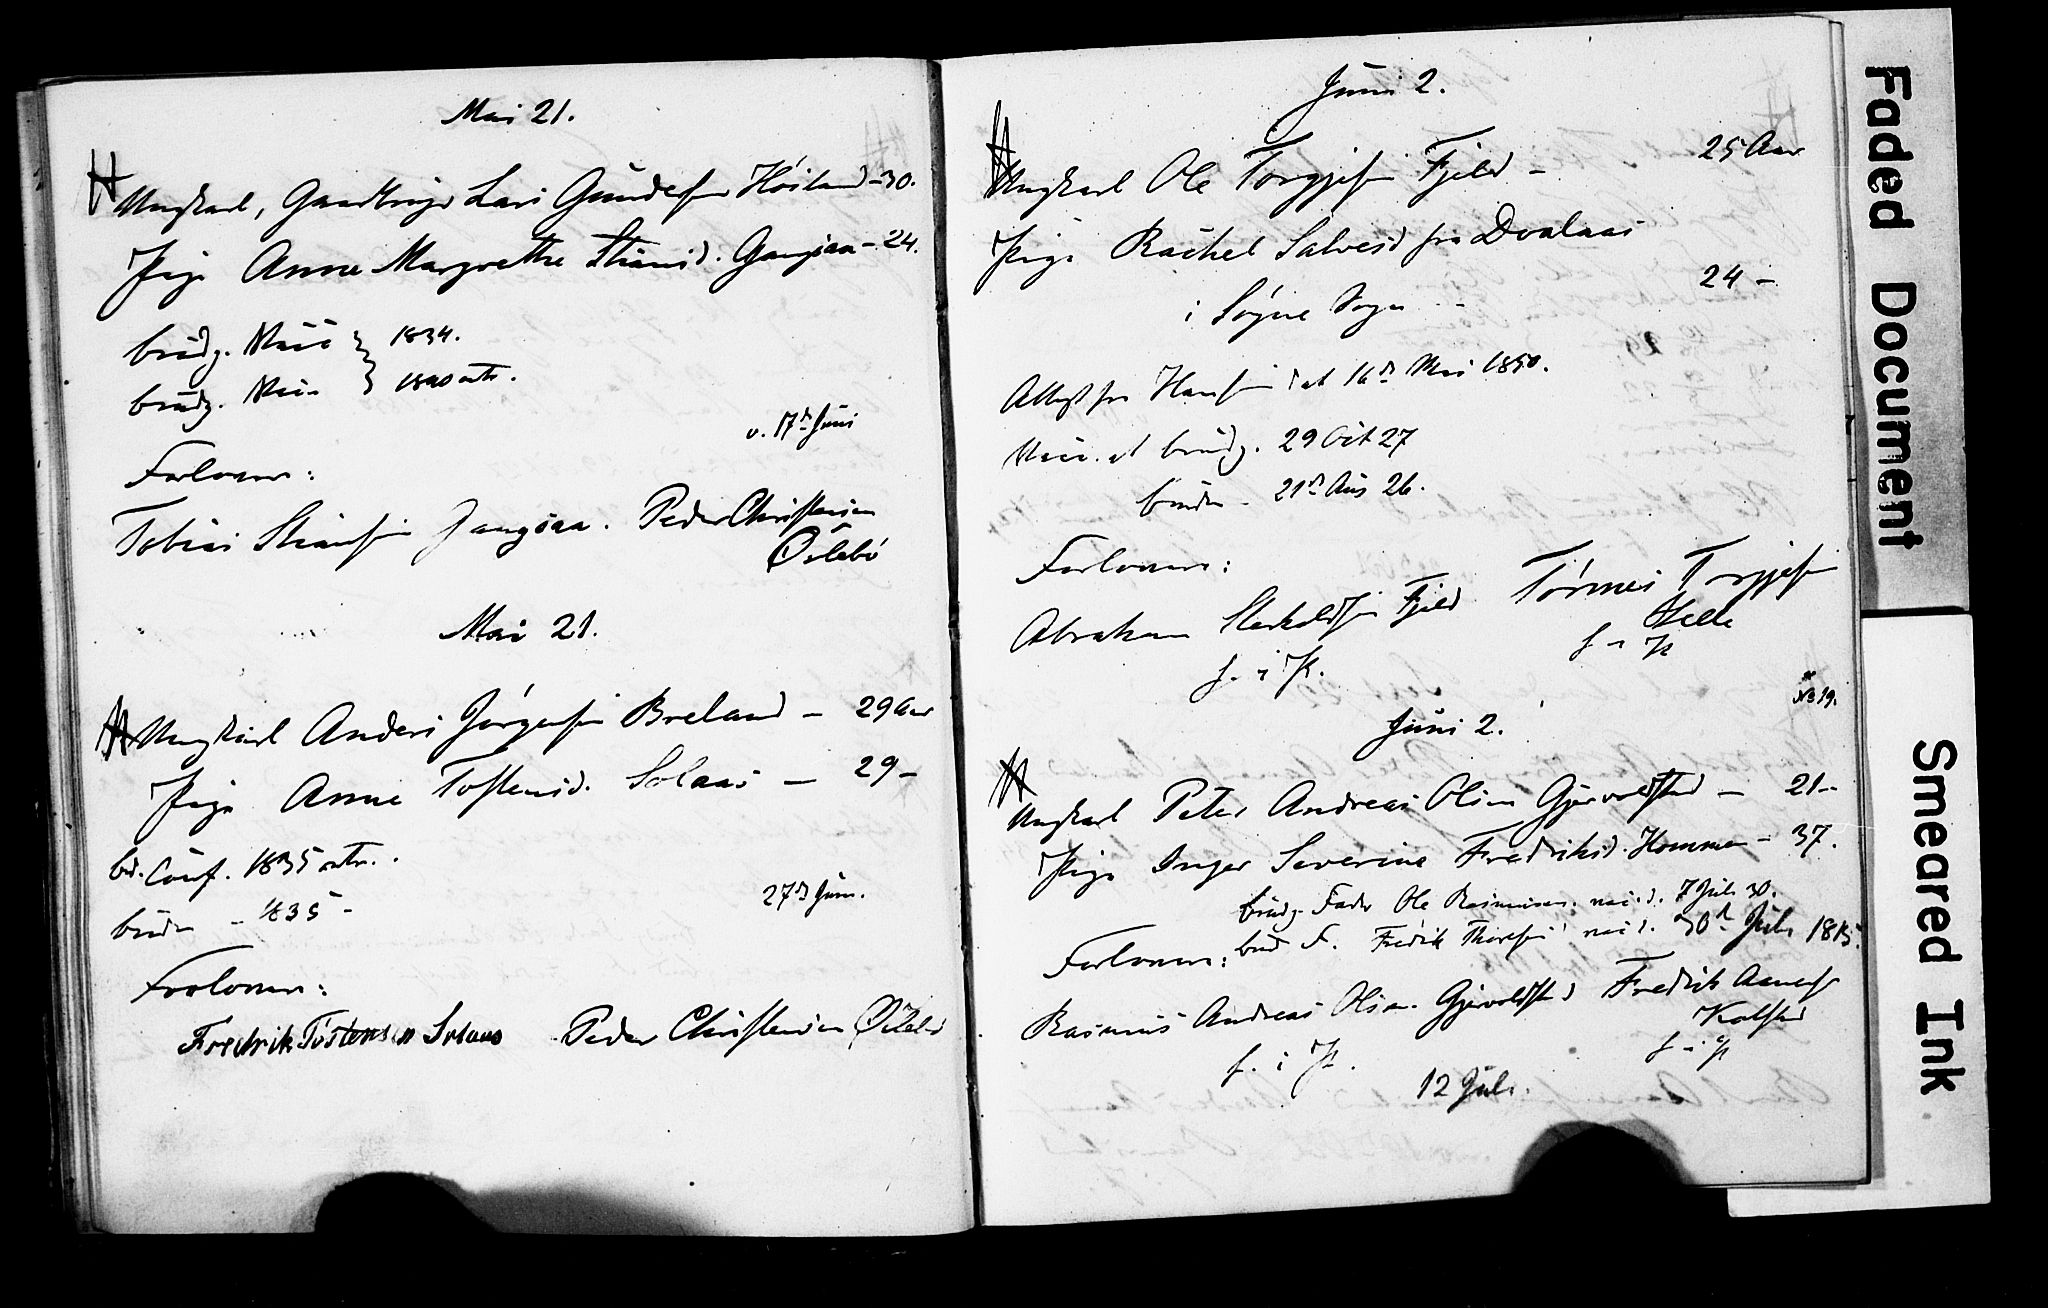 Mai 21.
Ungkarl, Gaardbruger Lars Gundersen Höiland - 30.
Pige Anne Margrethe Stiansd. Gangsaa - 24.
brudg. Vacc. 1834.
brudg. Vacc. 1840 att.
v. 17d Juni
Forlovere:
Tobias Stiansen Gangsaa. Peder Christensen
Öslebö
Mai 21.
Ungkarl Anders Jörgensen Breland - 29 Aar
Pige Anne Tostensd. Solaas - 29 -
bd. Conf. 1835 att.
bruden - 1835 -
27d Juni.
Forlovere:
Fredrik Tostensen Solaas Peder Christensen Öslebö
Juni 2.
Ungkarl Ole Torgjesen Fjeld - 25 Aar
Pige Rachel Salvesd fra Dvalaas
i Søgne Sogn - 24 -
Attest fra Hansen dat 16d Mai 1850.
Vacc. at brudg. 29 Oct 27
bruden - 21d Aug 26.
Forlovere:
Abraham Sterkoldsen Fjeld Tørres Torgjesen
Helle
f. i P. f - P
No 19.
Juni 2.
Ungkarl Peter Andreas Olsen Gjervoldstad - 21 -
Pige Inger Severine Fredriksd. Homme - 37.
brudg. Fader Ole Rasmussen. vac. d. 7 Juli 30.
brud F. Fredrik Thoresen vac d. 30d Juli 1815.
Forlovere:
Rasmus Andreas Olsen Gjervoldstad Fredrik Aanens
Kolstad
f. i P. f - i P
12 Juli.
Faded Document
Smeared Ink